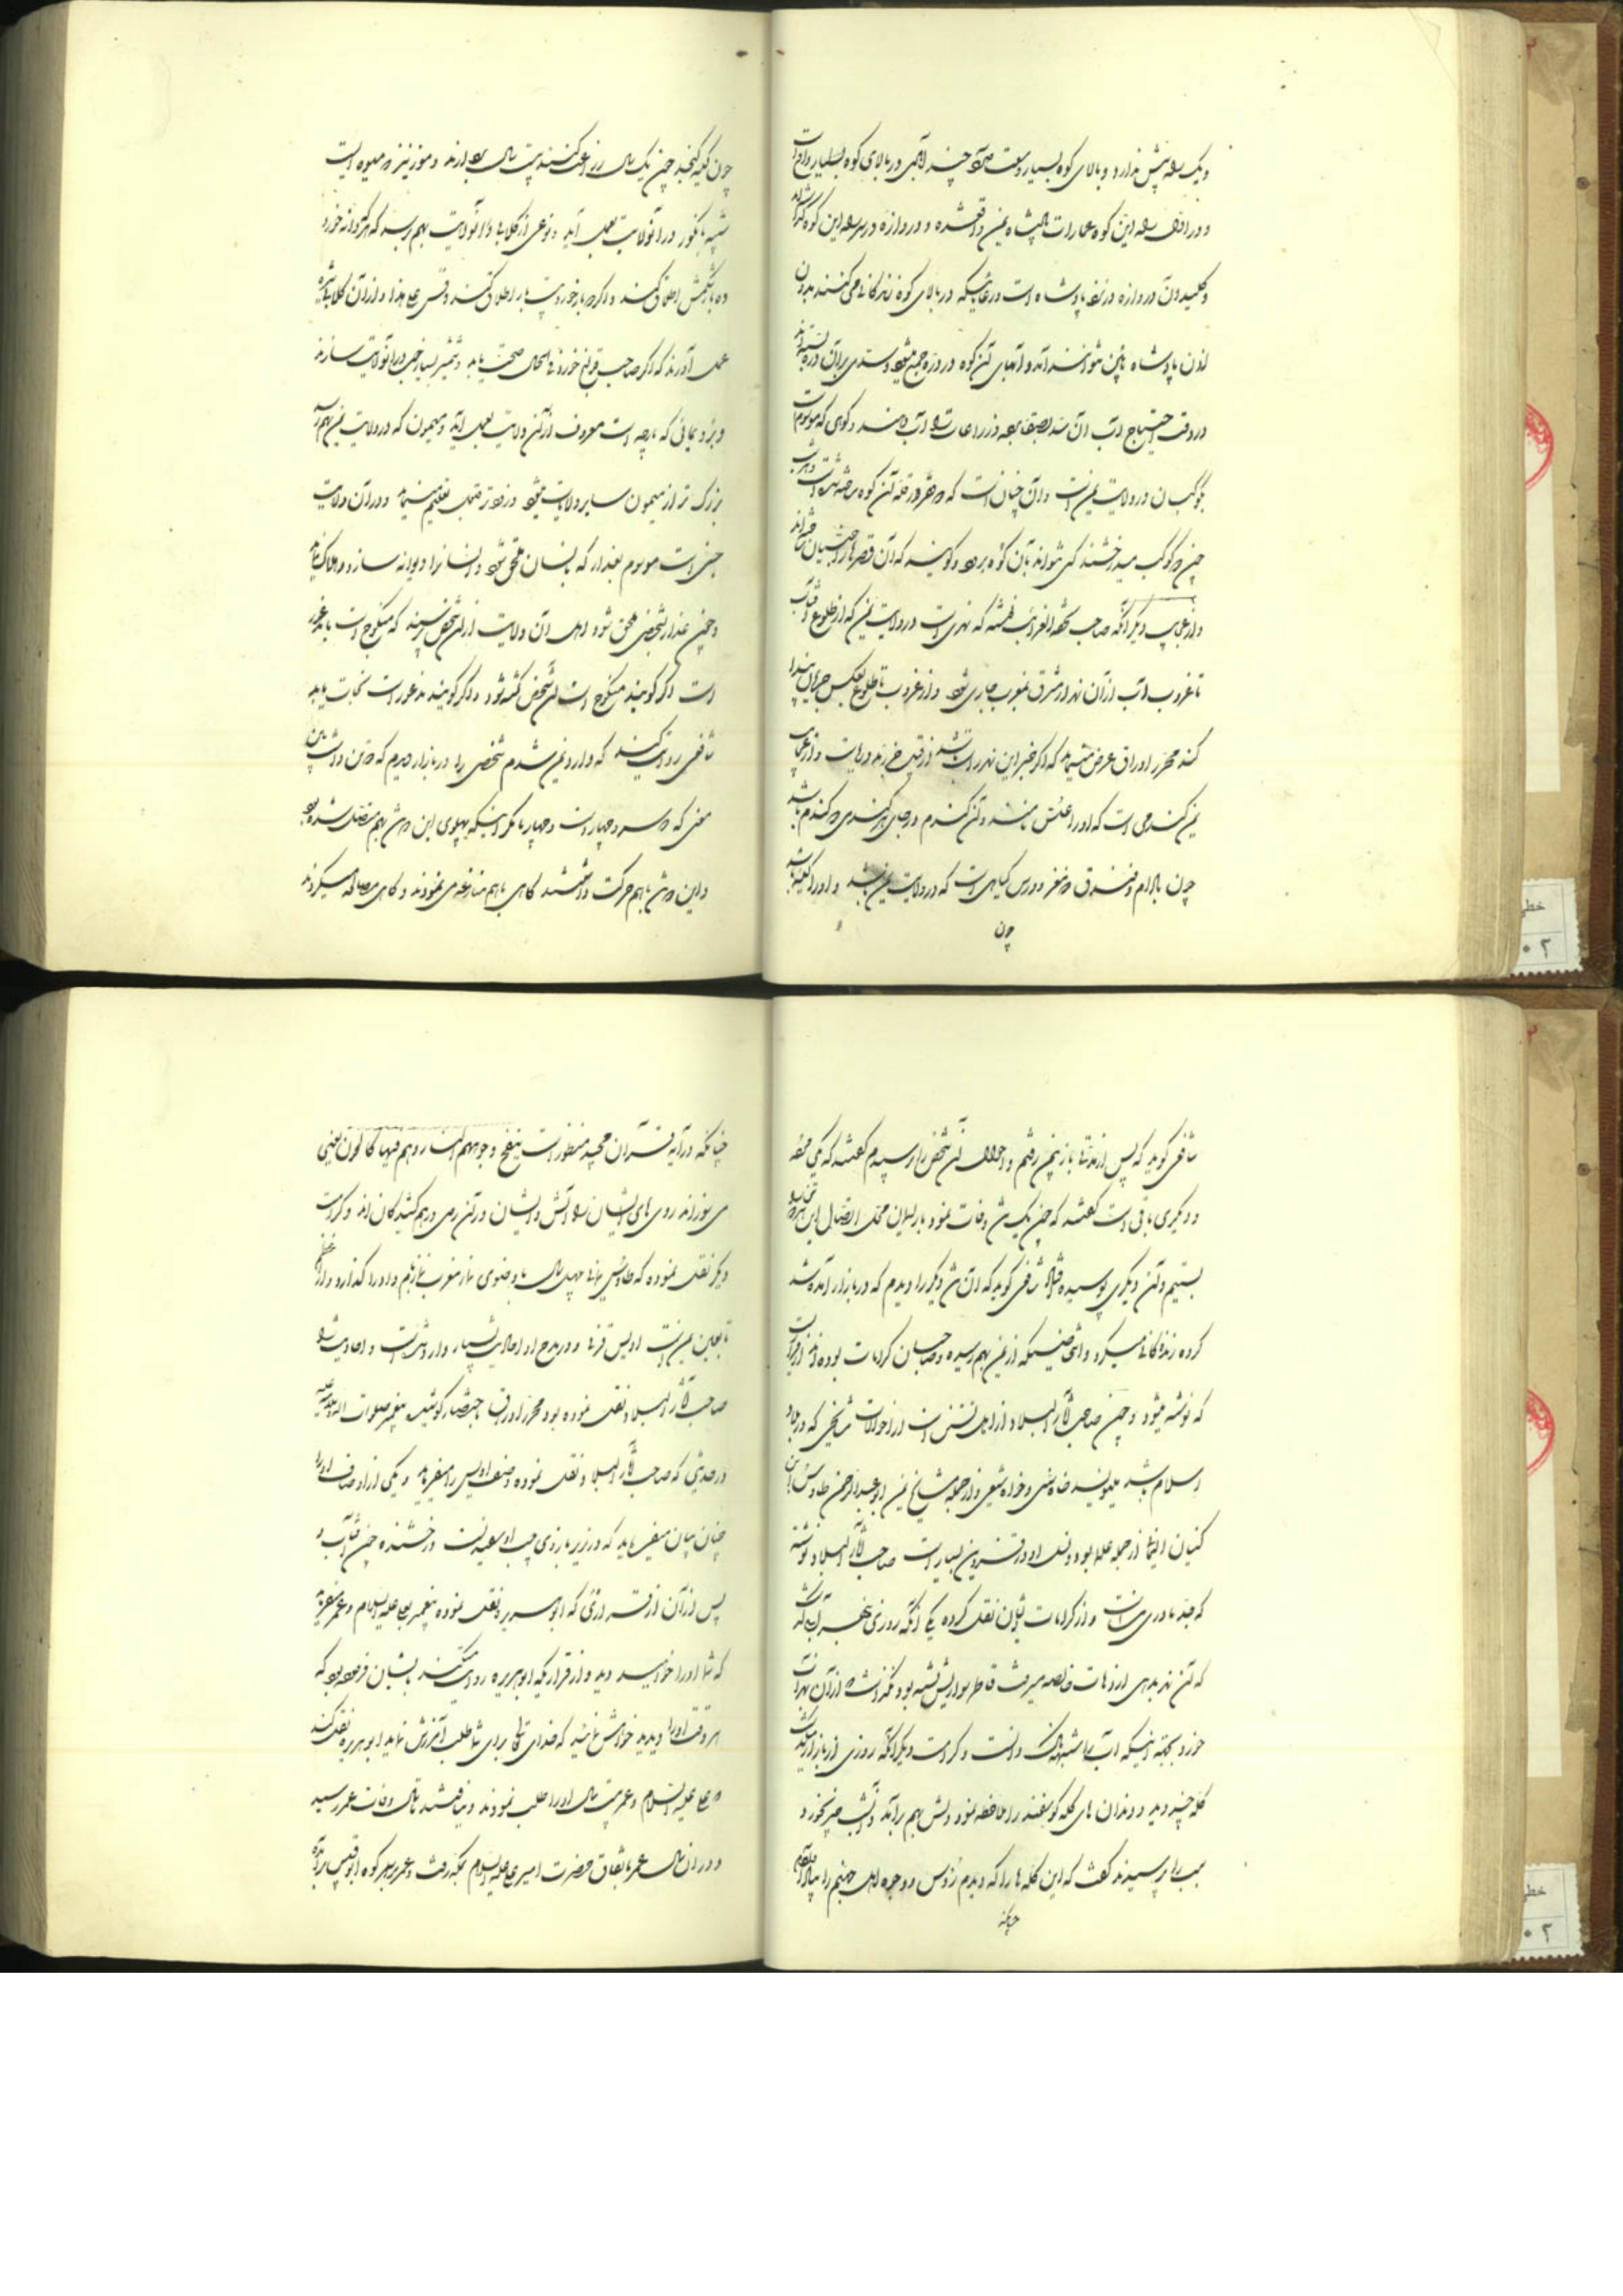 و یک راه پیش ندارد و بالای کوه بسیار وسعت دارد چند لابی در بالای کوه بسیار واقع است
و در اول راه این کوه عمارات پادشاه یمن واقع شده و دروازه در سر راه این کوه گذاشته‌اند
و کلید آن دروازه در نزد پادشاه است و رعایائیکه در بالای کوه زندگانی می‌کنند بدون
اذن پادشاه پائین نتوانند آمد و آبهای آن کوه در دره جمع میشود و سدی بر آن دره بسته‌اند
در وقت احتیاج آب آن سد بقدر زراعات را آب دهند و کوهی که موسوم است
بکوکبان در ولایت یمن است و آن چنانست که دو قصر در قلعه آن کوه ساخته شده است
چون کوکب میدرخشند کسی نتواند بآن کوه برود و گویند که آن قصرها را جنیان ساخته‌اند
و از عجایب دیگر آنکه صاحب تحفه الغرایب نوشته که نهری است در ولایت یمن که از طلوع آفتاب
تا غروب آب از آن نهر از مشرق بمغرب جاری شود و از غروب تا طلوع بعکس جریان پیدا
کند محرر اوراق عرض مینماید که اگر خبر این نهر راست باشد از قبیل جزر و مد دریاست و از عجایب
یمن گندمی است که او را علس نامند و آن گندم در جای هر گندمی دو گندم باشد
چون بادام و فندق دو مغز و ورس گیاهی است که در ولایت یمن باشد و او را کنجد باشد
چون
چون کنجد چون یک سال زراعت کنند بیست سال بار آرند و موز نیز دو میوه ایست
شبیه بانگور در آن ولایت بعمل آید و نوعی از گلابی در آن ولایت بهم رسد که هر که دانه خورد
ده بار شکمش اطلاق کند و اگر دو بار خورد بیست بار اطلاق کند و قس علی هذا و از آن گلابی شیره
عمل آورند که اگر صاحب قولنج خورد فی الحال صحت یابد و شمشیر بسیار خوب در آن ولایت سازند
و برد یمانی که پارچه است معروف از آن ولایت بعمل آید و میمون که در ولایت یمن بهم رسد
بزرگ‌تر از میمون سایر ولایات میشود و زودتر قبول تعلیم مینماید و در آن ولایت
جنی است موسوم بغدار که بانسان ملحق شود و انسان را دیوانه سازد و هلاک نماید
و چون غدار بشخصی ملحق شود اهل آن ولایت از آن شخص پرسند که منکوح است یا مذعور
است اگر گویند منکوح است آن شخص کشته شود و اگر گویند مذعور است نجات یابد
شافعی روایت کند که وارد یمن شدم شخصی را در بازار دیدم که دو تن داشت باین
معنی که دو سر و چهار دست و چهار پا مگر اینکه پهلوی این دو تن بهم متصل شده بود
و این دو تن با هم حرکت داشتند گاهی با هم منازعه می‌نمودند و گاهی مصالحه میکردند
شافعی گوید که پس از مدتها باز بیمن رفتم و احوال آن شخص را پرسیدم گفتند که یکی مرد
و دیگری باقی است گفتند که چون یک تن وفات نمود باریسمان محل اتصال این تن مرده را
بستیم و آن دیگری پوسیده افتاد شافعی گوید که آن تن دیگر را دیدم که در بازار آمد و شد
کرده زندگانی میکرد و اشخاصیکه از یمن بهم رسیده و صاحبان کرامات بوده‌اند از قراریست
که نوشته میشود و چون صاحب آثار البلاد از اهل تسنن است از احوالات مشایخی که در بلاد
اسلام باشد مینویسد خواه سنی و خواه شیعی و از جمله مشایخ یمن ابو عبدالرحمن طاوس ابن
کیسان الیمانی از جمله علما بود و نسل او در قزوین بسیار است صاحب آثار البلاد نوشته
که جد مادری من است و از کرامات ایشان نقل کرده یکی آنکه روزی بنهر آب گذشت
که آن نهر بدهی از دهات خالصه میرفت قاطر سواریش تشنه بود نگذاشت از آن نهر آب
خورد بجهت اینکه آب را مشتبه دانست و کرامت دیگر آنکه روزی از بازار میگذشت
کله چند دید و دندان های کله گوسفند را ملاحظه نمود دلش بهم برآمد و آن شب چیز نخورد و
سبب را پرسیدند گفت که این کله ها را که دیدم رؤس و وجوه اهل جهنم را بیاد آوردم
چنانکه
چنانکه در آیه قرآن مجید منظور است تلفح وجوههم النار و هم فیها کالحون یعنی
می سوزاند روی های ایشان را آتش و ایشان در آن روی درهم کشیدگان‌اند و کرامت
دیگر نقل نموده که طاوس یمانی چهل سال با وضوی نماز مغرب نماز بام را ادا گذارد و از اعظم
تابعین یمن است اویس قرنی و در مدح او احادیث بسیار وارد شده است و احادیث را
صاحب آثار البلاد نقل نموده بود محرر اوراق باختصار کوشید پیغمبر صلوات الله علیه
در حدیثی که صاحب آثار البلاد نقل نموده وصف اویس را میفرماید و یکی از اوصاف او را
چنان بیان میفرماید که در زیر بازوی چپ او سفیدیست درخشنده چون آفتاب و
پس از آن از قراری که ابو هریره نقل نموده پیغمبر بعلی علیه السلام و عمر میفرماید
که شما او را خواهید دید و از قراریکه ابو هریره روایت کند بایشان فرموده بود که
هر وقت او را دیدید خواهش نمائید که خدای تعالی برای شما طلب آمرزش نماید ابو هریره نقل کند
که علی علیه السلام و عمر بیست سال او را طلب نمودند و نیافتند تا سال وفات عمر رسید
و در آن سال عمر باتفاق حضرت امیر علیه السلام بمکه رفت و عمر بر سر کوه ابو قبیس برآمده